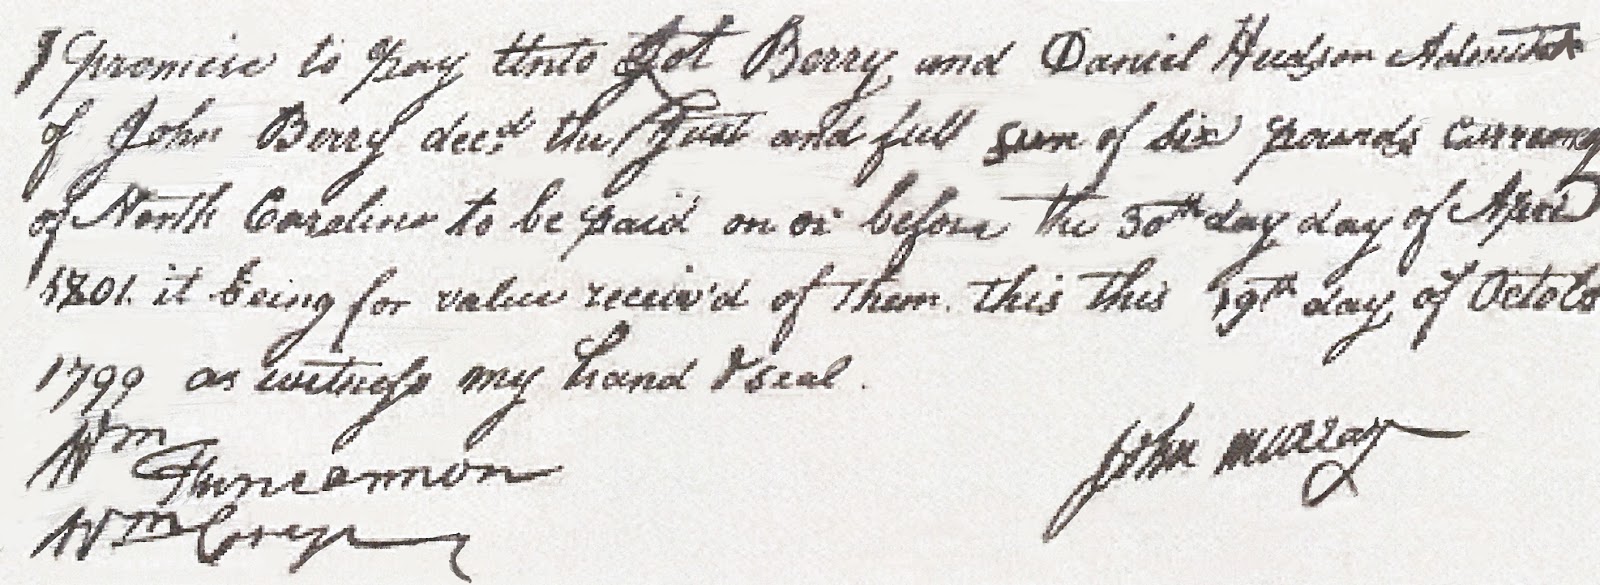 I promise to pay unto Jot Berry, and Daniel Hudson
of John Berry decd the Just and full sum of six pounds Currency
of North Carolina to be paid on or before the 30th day day of April
1801. it being for value receiv'd of them. this this 19th day of Octob
1799 as witness my hand & seal.
John Murray
Wm
Wm